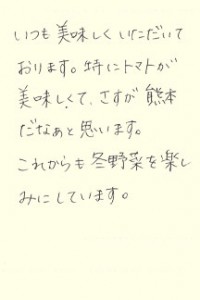 いつも美味しくいただいて
おります。特にトマトが
美味しくて、さすが熊本
だなぁと思います。
これからも冬野菜を楽し
みにしています。